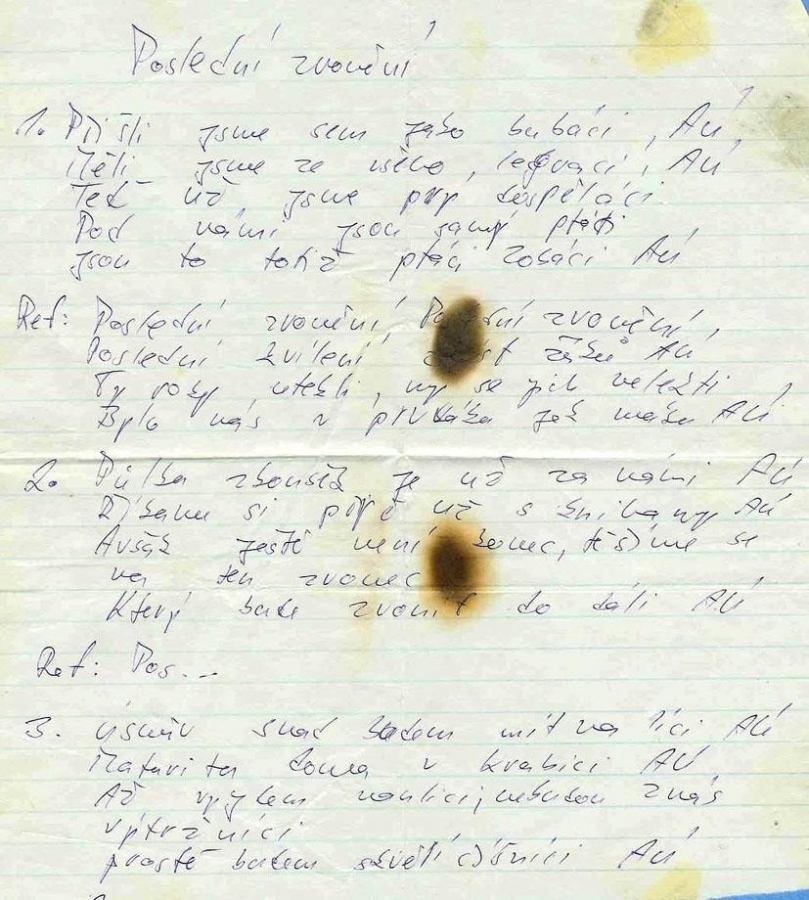 Poslední zvonění
1. Přišli jsme sem jako bubáci, AÚ
Měli jsme ze všeho, legraci, AÚ
Teď už jsme prý dospěláci
Pod námi jsou samý ptáci
jsou to totiž ptáci zobáci AÚ
Ref: Poslední zvonění, zvonění,
Poslední kvílení žáků AÚ
Ty roky utekli, my se jich nelekli
Bylo nás v prváku jak máku AÚ
2. Půlka zkoušek je už za námi AÚ
Říkamu si prý už s knihamy AÚ
Avšak ještě není konec, těšíme se
na ten zvonec
Který bude zvonit do dáli AÚ
Ref: Pos...
3. Úsměv snad budem mít na líci AÚ
Maturitu doma v krabici AÚ
Až vyjdem na ulici, nebudou z nás
výtržníci
prostě budem skvělí číšníci AÚ